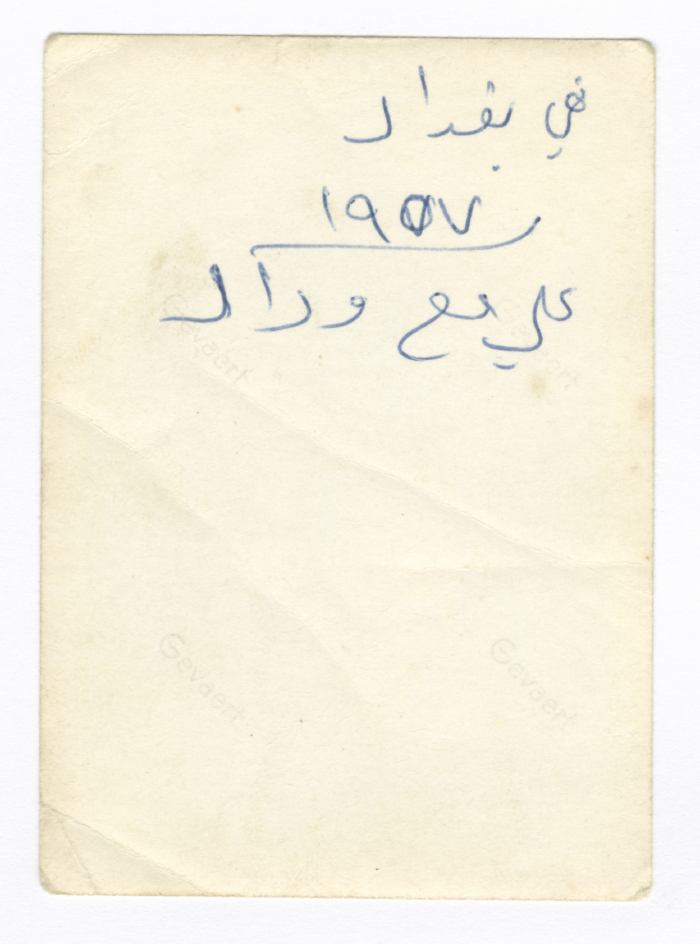 في بغداد
١٩٥٧
علي مع
Gevaert
Gevaert
Gevaert
Gevaert